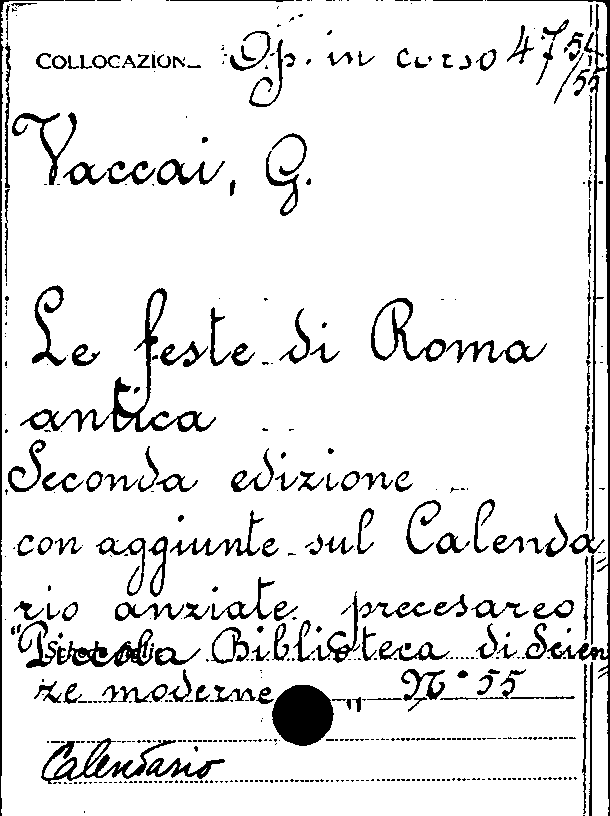 COLLOCAZION
Op. in corso 47 54/55
Vaccai, G.
Le feste di Roma
antica
Seconda edizione
con aggiunte sul Calenda
rio anziate precesareo
"Piccola Biblioteca di Scien
ze moderne" N° 55
Calendario